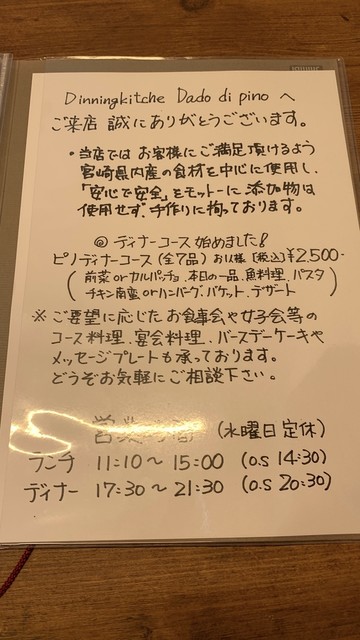 Dinningkitche Dado di pino へ
ご来店 誠にありがとうございます。
・当店では お客様にご満足頂けるよう
宮崎県内産の食材を中心に使用し、
「安心で安全」をモットーに 添加物は
使用せず、手作りに拘っております。
◎ ディナーコース 始めました!
ピノディナーコース (全7品) お1人様 [税込] ¥2,500-
(前菜orカルパッチョ、本日の一品、魚料理、パスタ
チキン南蛮orハンバーグ、バケット、デザート)
※ ご要望に応じた お食事会や女子会等の
コース料理、宴会料理、バースデーケーキや
メッセージプレートも承っております。
どうぞお気軽にご相談下さい。
営業時間 (水曜日定休)
ランチ 11:10〜15:00 (o.s 14:30)
ディナー 17:30〜21:30 (o.s 20:30)